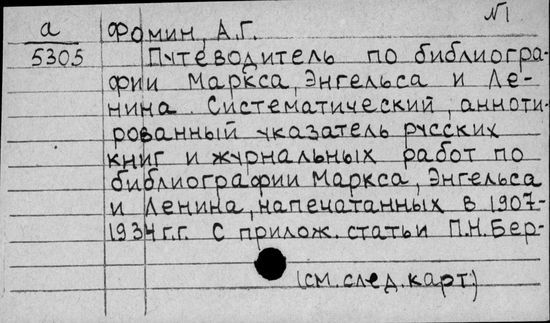 №1
а Фомин, А.Г.
5305 Путеводитель по библиогра-
фии Маркса, Энгельса и Ле-
нина. Систематический, анноти-
рованный указатель русских
книг и журнальных работ по
библиографии Маркса, Энгельса
и Ленина, напечатанных в 1907-
1934 г.г. С прилож. статьи П.Н. Бер-
(см. след. карт.)